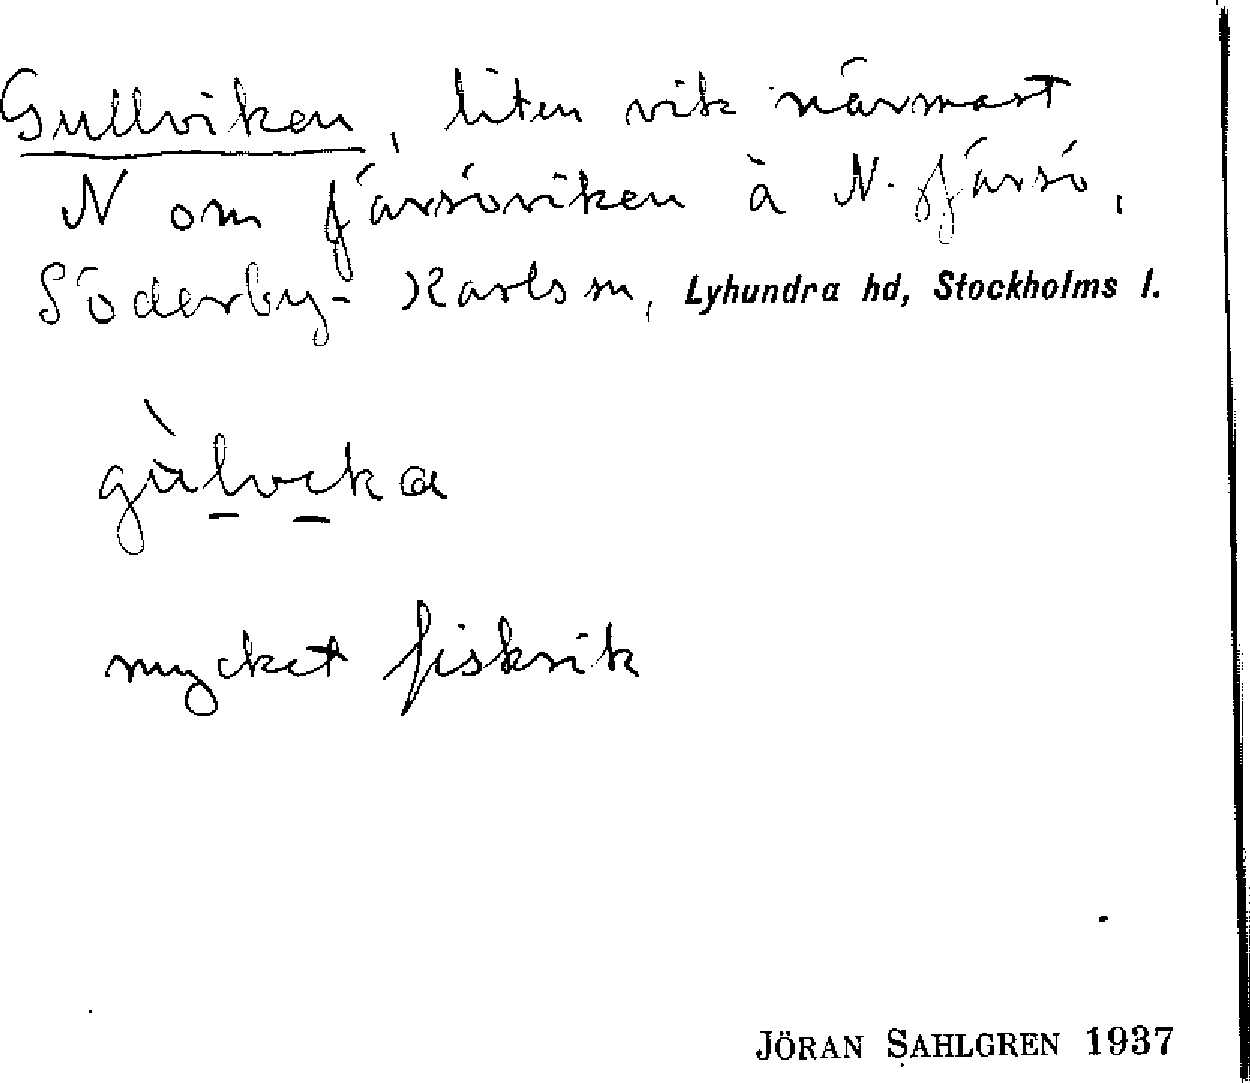 Gullviken, liten vik närmast
N om Järsöviken å N. Järsö,
Söderby-Karls sn, Lyhundra hd, Stockholms l.
gùlvika
mycket fiskrik
JÖRAN SAHLGREN 1937